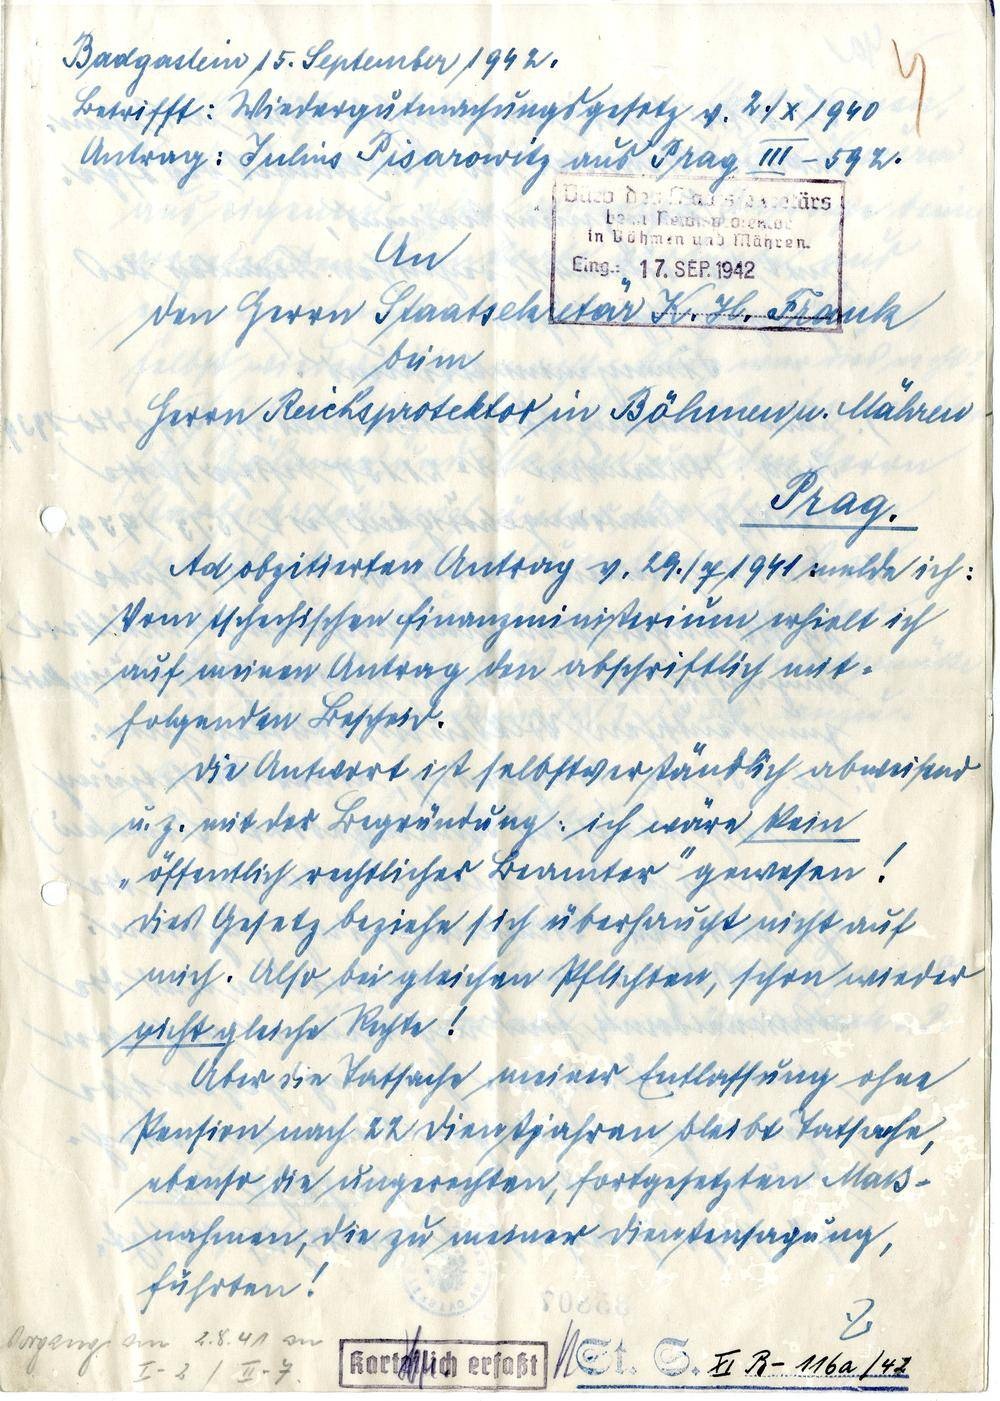 Badgastein 15. September 1942.
Betrifft: Wiedergutmachungsgesetz v. 2./X 1940
Antrag: Julius Pisarowitz aus Prag III - 592.
Büro des Staatssekretärs
beim Reichsprotektor
in Böhmen und Mähren.
Eing.: 17. SEP. 1942
An
den Herrn Staatsekretär K. H. Frank
beim
Herrn Reichsprotektor in Böhmen u. Mähren
Prag.
Ad obzitierten Antrag v. 29./7 1941 melde ich:
Vom tschechischen Finanzministerium erhielt ich
auf meinen Antrag den abschriftlich mit-
folgenden Bescheid.
Die Antwort ist selbstverständlich abweisend
u. z. mit der Begründung: ich wäre kein
„öffentlich rechtlicher Beamter" gewesen!
Dies Gesetz beziehe sich überhaupt nicht auf
mich. Also bei gleichen Pflichten, schon wieder
nicht gleiche Rechte!
Aber die Tatsache meiner Entlassung ohne
Pension nach 22 Dienstjahren bleibt Tatsache,
ebenso die ungerechten, fortgesetzten Maß-
nahmen, die zu meiner Dienstentsagung,
führten!
Vorgang am 2.8.41 an
I-2 / II-7.
Karteilich erfaßt
St. S. XI B - 116a/42